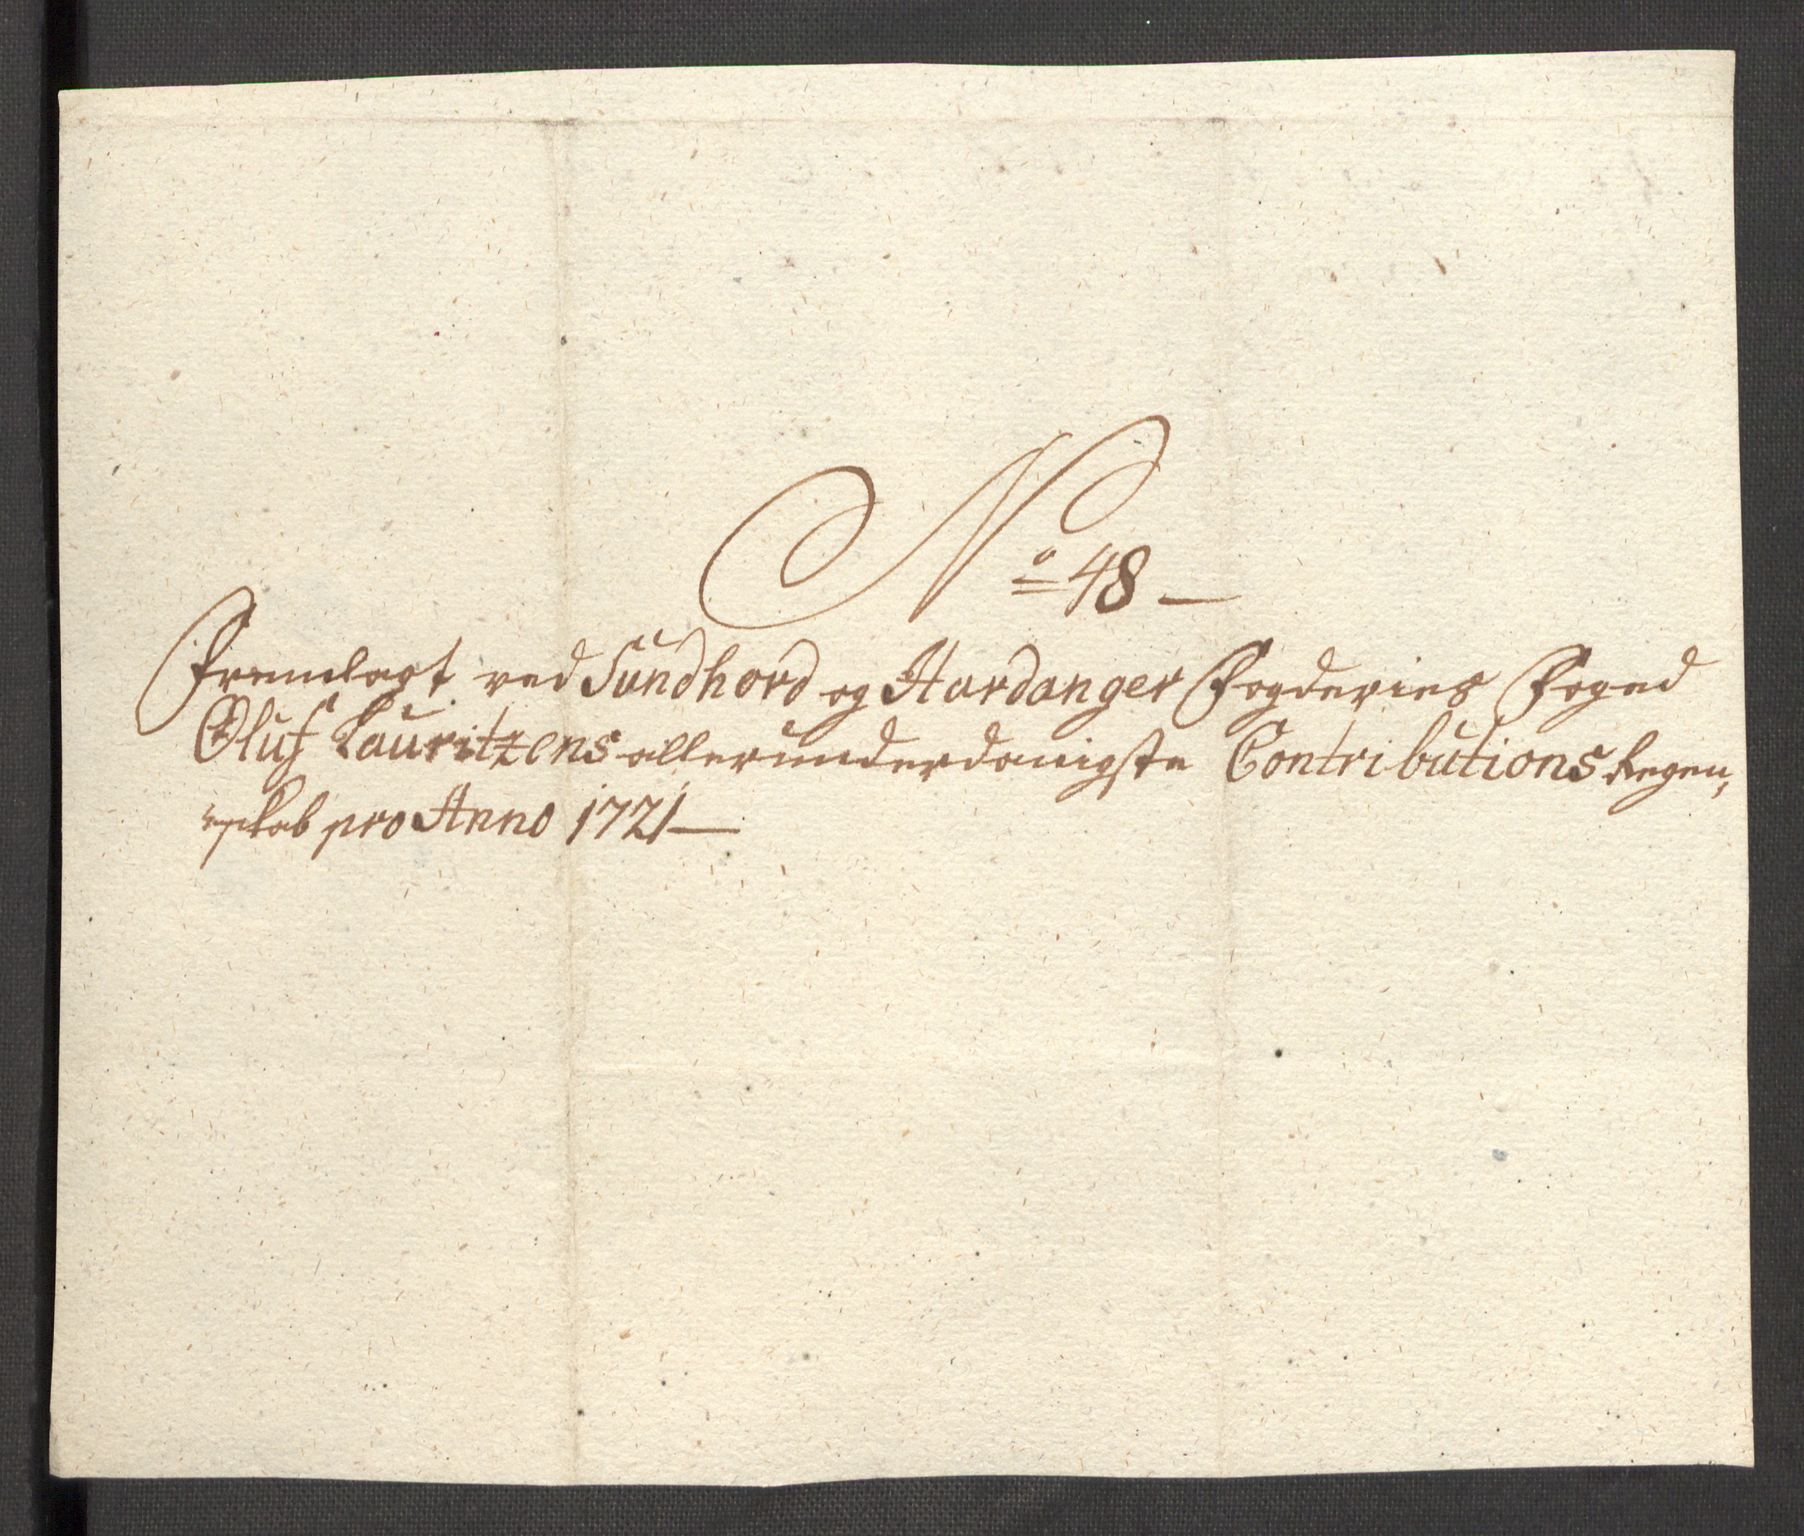 No 48 —
Fremlagt ved Sundhord og Hardanger Fogderies Foged
Oluf Lauritzens allerunderdanigste Contributions Regen,
skab pro Anno 1721 —